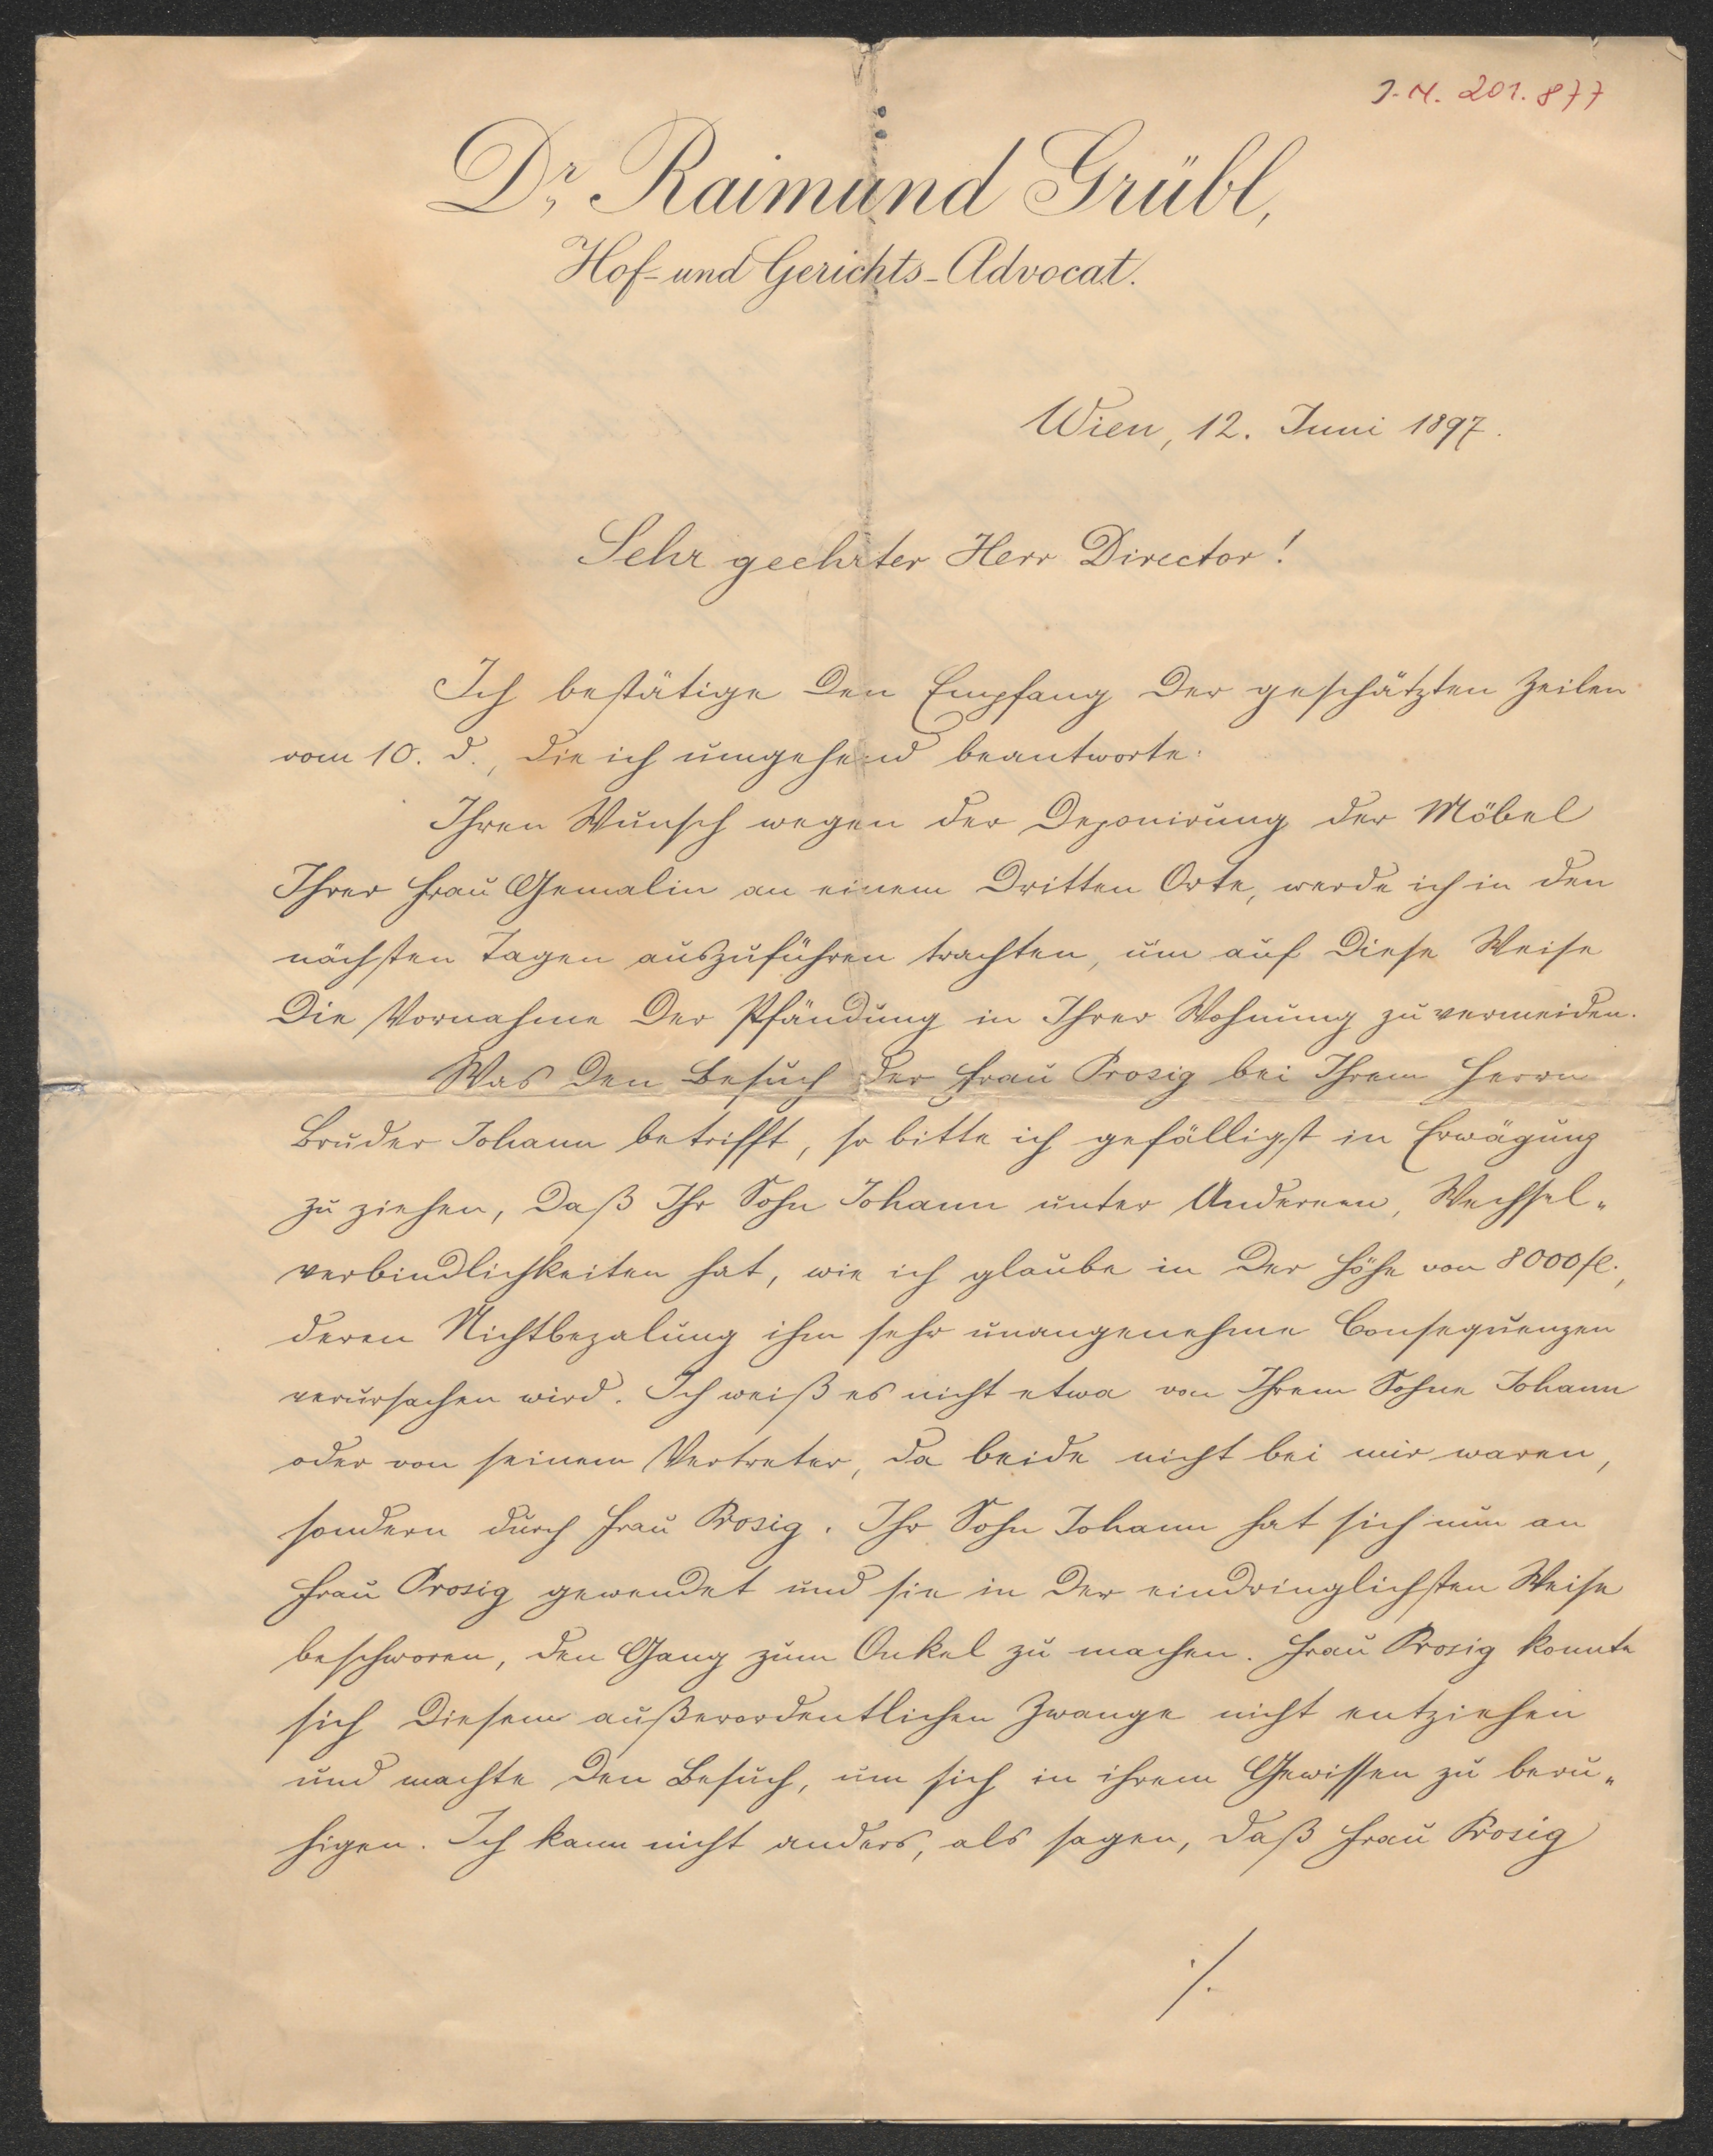 J. N. 201.877
Dr. Raimund Grübl,
Hof- und Gerichts-Advocat.
Wien, 12. Juni 1897.
Sehr geehrter Herr Director!
Ich bestätige den Empfang der geschätzten Zeilen
vom 10. d., die ich umgehend beantworte:
Ihren Wunsch wegen der Deponirung der Möbel
Ihrer Frau Gemalin an einem dritten Orte, werde ich in den
nächsten Tagen auszuführen trachten, um auf diese Weise
die Vornahme der Pfändung in Ihrer Wohnung zu vermeiden.
Was den Besuch der Frau Prosig bei Ihrem Herrn
Bruder Johann betrifft, so bitte ich gefälligst in Erwägung
zu ziehen, daß Ihr Sohn Johann unter Anderem, Wechsel-
verbindlichkeiten hat, wie ich glaube in der Höhe von 8000 fl.,
deren Nichtbezalung ihm sehr unangenehme Consequenzen
verursachen wird. Ich weiß es nicht etwa von Ihrem Sohne Johann
oder von seinem Vertreter, da beide nicht bei mir waren,
sondern durch Frau Prosig. Ihr Sohn Johann hat sich nun an
Frau Prosig gewendet und sie in der eindringlichsten Weise
beschworen, den Gang zum Onkel zu machen. Frau Prosig konnte
sich diesem außerordentlichen Zwange nicht entziehen
und machte den Besuch, um sich in ihrem Gewissen zu beru-
higen. Ich kann nicht anders, als sagen, daß Frau Prosig
./.